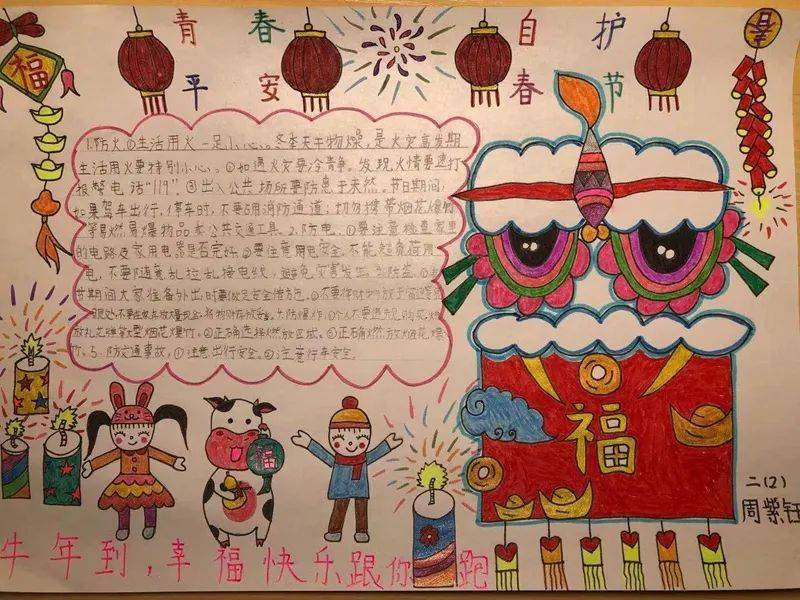 青春自护
平安春节
福
春
1.防火①生活用火一定小心。冬季天干物燥,是火灾高发期
生活用火要特别小心。②如遇火灾要冷静。发现火情要速打
报警电话"119"③出入公共场所要防患于未然。节日期间,
如果驾车出行,停车时,不要占用消防通道;切勿携带烟花爆竹
等易燃易爆物品乘公共交通工具。2.防电。①要注意检查家里
的电路及家用电器是否完好。②要注意用电安全。不能超负荷用
电,不要随意乱拉乱接电线,避免灾害发生。3.防盗。
节期间大家准备外出时要做足安全措施。②不要将
放礼花弹等大型烟花爆竹。②正确选择燃放区域。③正确燃放烟花爆
竹。5.防交通事故,①注意出行安全。②注意行车安全。
福
福
二(2)
周紫钰
牛年到,幸福快乐跟你跑